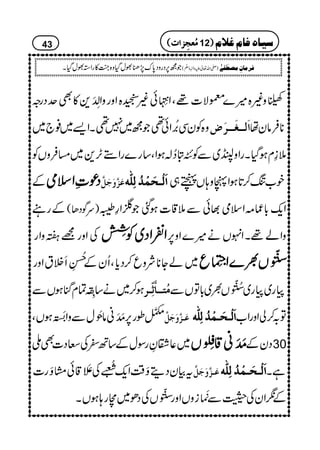 سیاہ فام غلام (12 مُعجزات) 43
فرمانِ مصطفٰے جو مجھ پر درود پاک پڑھنا بھول گیا وہ جنت کا راستہ بھول گیا۔
کھیلنا وغیرہ میرے معمولات تھے، انتہائی غیر سنجیدہ اور والِدین کا بھی حد درجہ
نافرمان تھا۔ اَلْغَرَض وہ کون سی بُرائی تھی جو مجھ میں نہیں تھی۔ ایسے میں فوج میں
ملازِم ہو گیا۔ راولپنڈی سے کوئٹہ تبادلہ ہوا، سارے راستے ٹرین میں مسافروں کو
خوب تنگ کرتا ہوا وہاں پہنچا پہنچتے ہی اَلْحَمْدُ لِلّٰہ عَزَّوَجَلَّ دعوتِ اسلامی کے
ایک باعمامہ اسلامی بھائی سے ملاقات ہو گئی جو گلزارِ طیبہ (سرگودھا) کے رہنے
والے تھے۔ انہوں نے میرے اوپر اِنفرادی کوشِش کی اور مجھے ہفتہ وار
سنّتوں بھرے اجتماع میں لے جانا شروع کر دیا، اُن کے حُسنِ اَخلاق اور
پیاری پیاری سُنّتوں بھری باتوں سے مُتَأَثِّر ہو کر میں نے سابِقہ تمام گناہوں سے
توبہ کر لی اور اب اَلْحَمْدُ لِلّٰہ عَزَّوَجَلَّ مکمَّل طور پر مَدَنی ماحول سے وابَستہ ہوں،
30 دن کے مَدَنی قافِلوں میں عاشقانِ رسول کے ساتھ سفر کی سعادت بھی ملی
ہے۔ اَلْحَمْدُ لِلّٰہ عَزَّوَجَلَّ یہ بیان دیتے وَقت ایک شُعبے کی عَلاقائی مشاوَرت
کے نگران کی حیثیت سے نَمازوں اور سنّتوں کی دھومیں مچا رہا ہوں۔